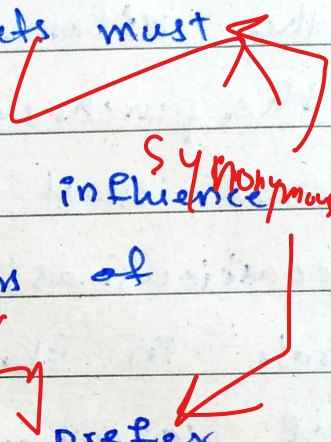 ets must
synonymous
influence
ns of
prefer